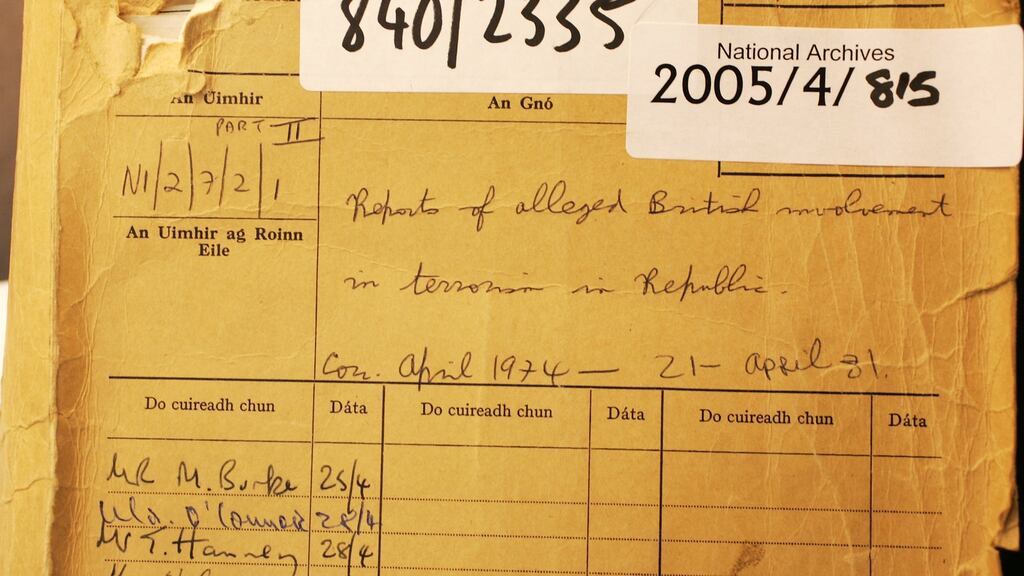 840/2335
National Archives
2005/4/815
An Uimhir
An Gnó
PART II
N1/2/7/2/1
Reports of alleged British involvement
An Uimhir ag Roinn
Eile
in terrorism in Republic.
Con. April 1974 — 21- April 81.
Do cuireadh chun Dáta Do cuireadh chun Dáta Do cuireadh chun Dáta
MR M. Burke 25/4
O'Connor 28/4
Mr T. Hanney 28/4